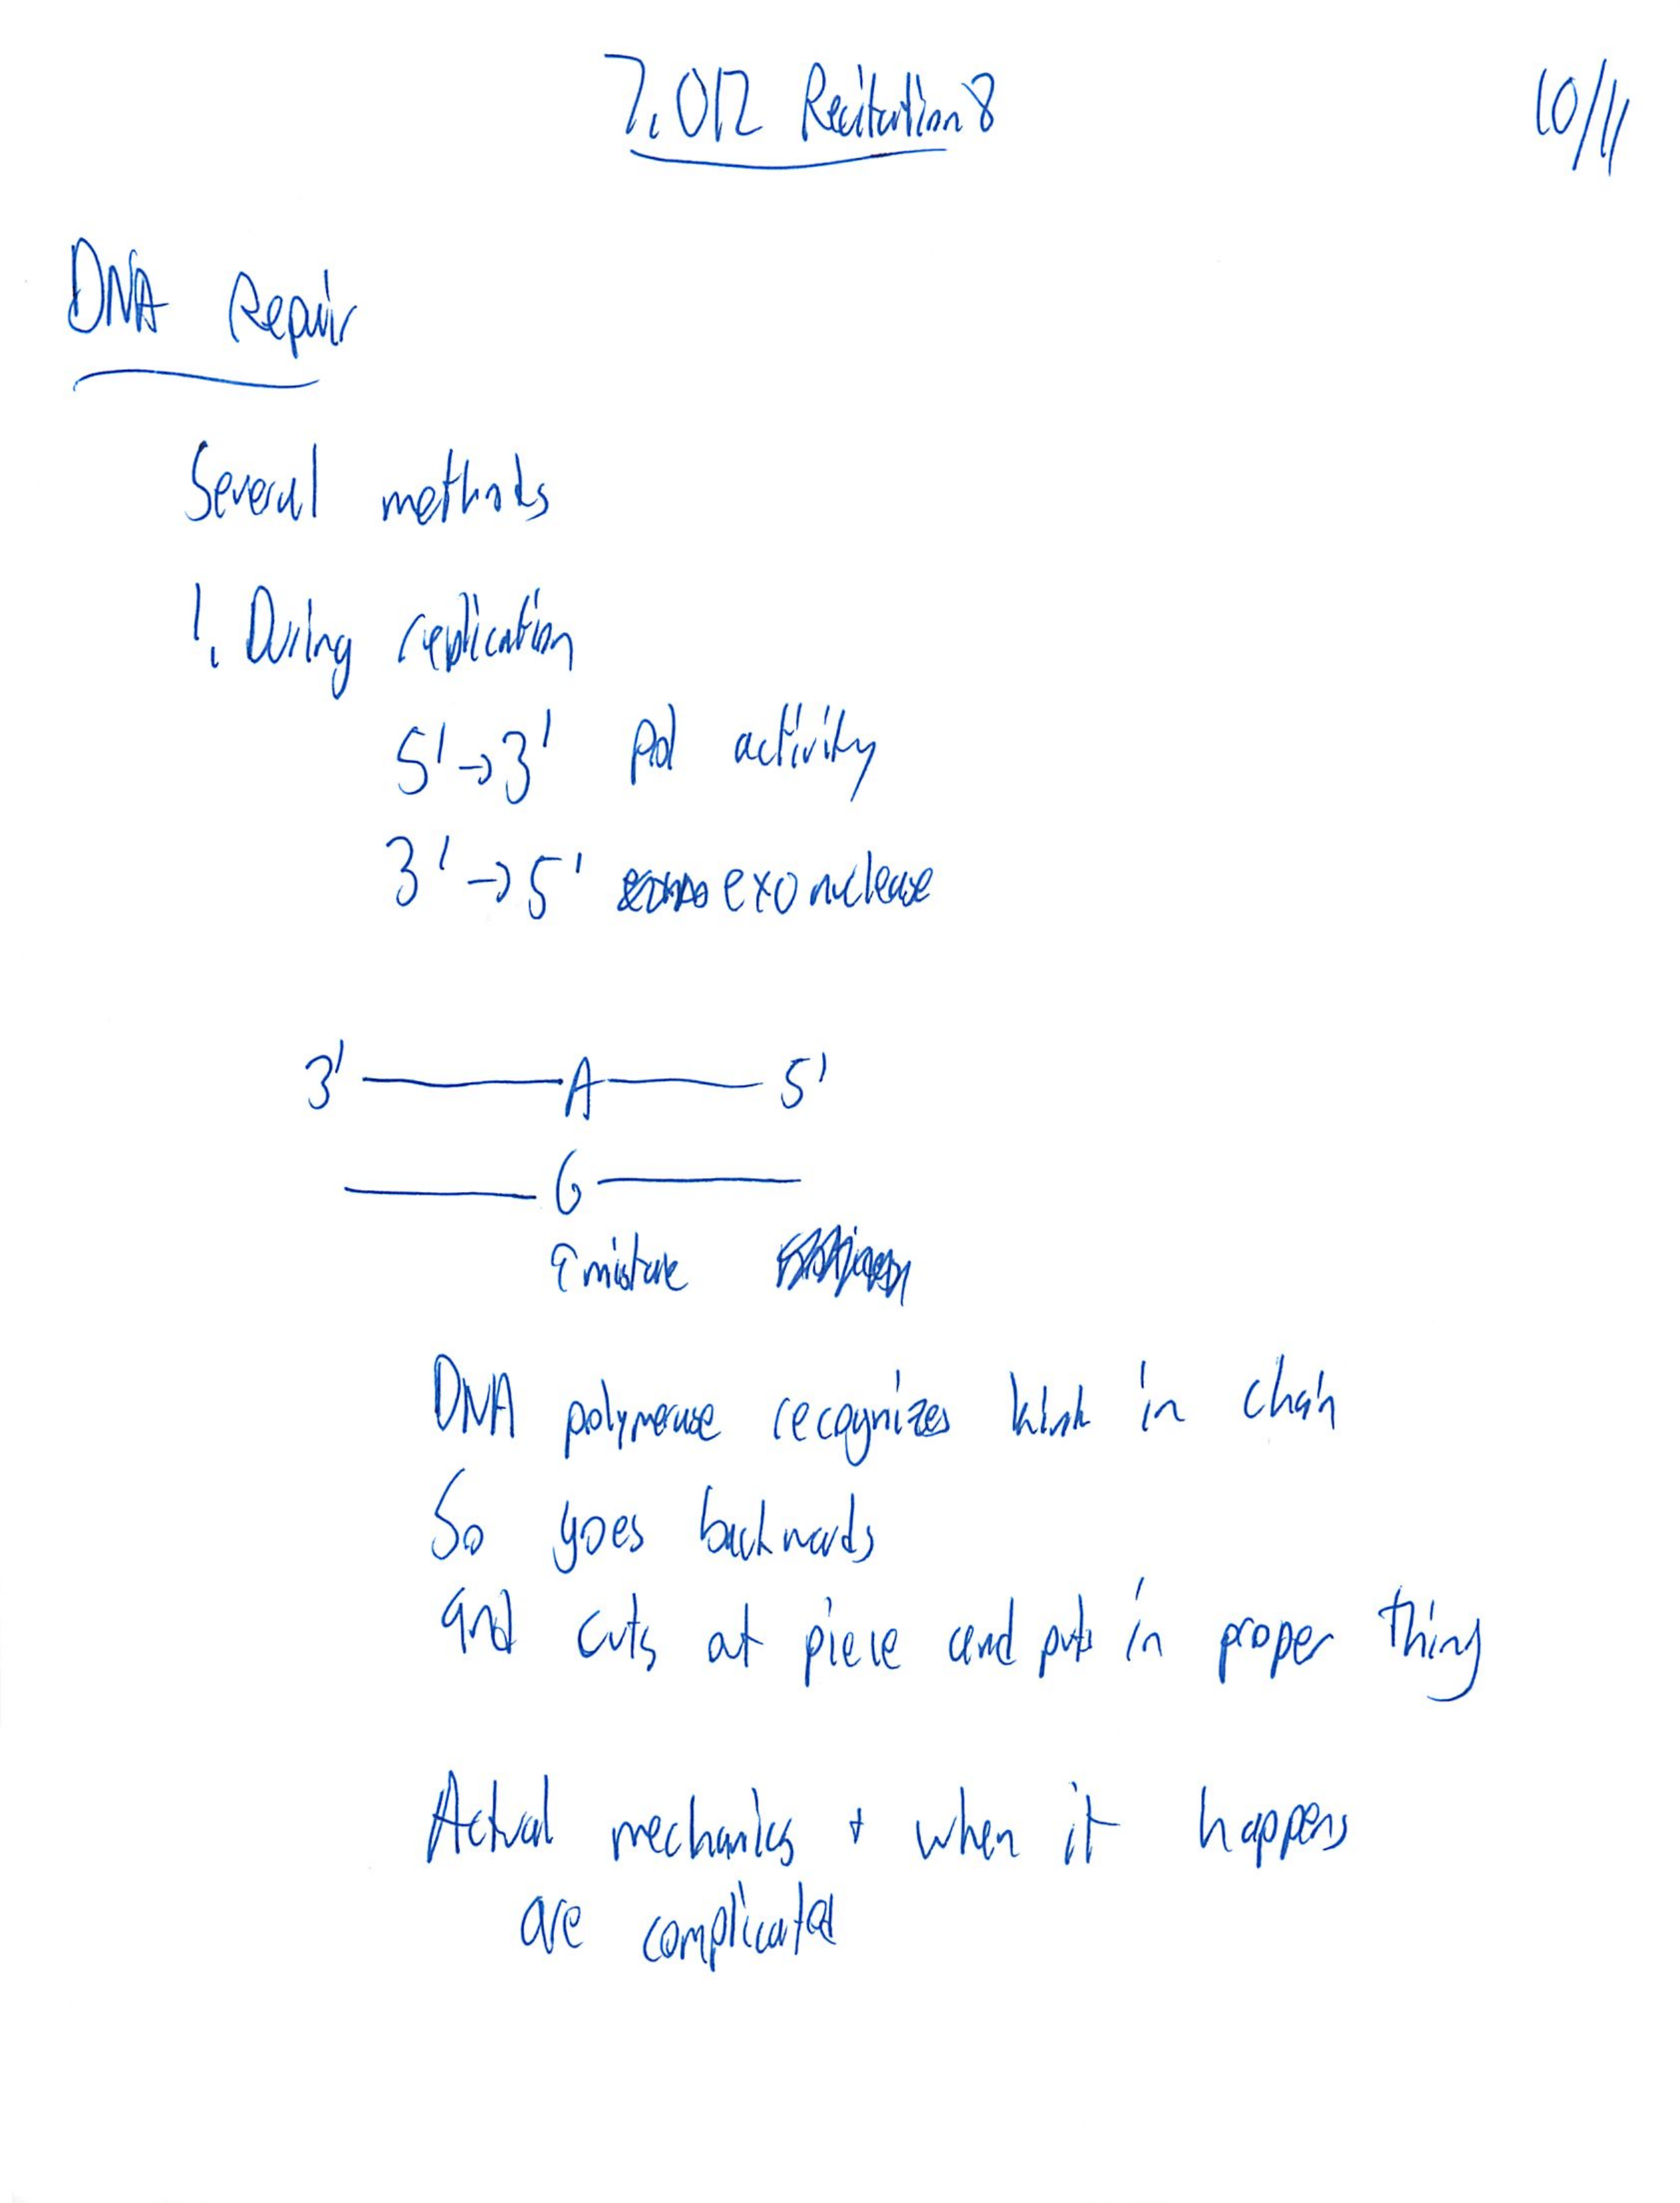 7.012 Recitation 8
10/11
DNA Repair
Several methods
1. During replication
5' → 3' Pol activity
3' → 5' exonuclease
3' A 5'
G
mistake
DNA polymerase recognizes kink in chain
So goes backwards
and cuts out piece and puts in proper thing
Actual mechanics + when it happens
are complicated